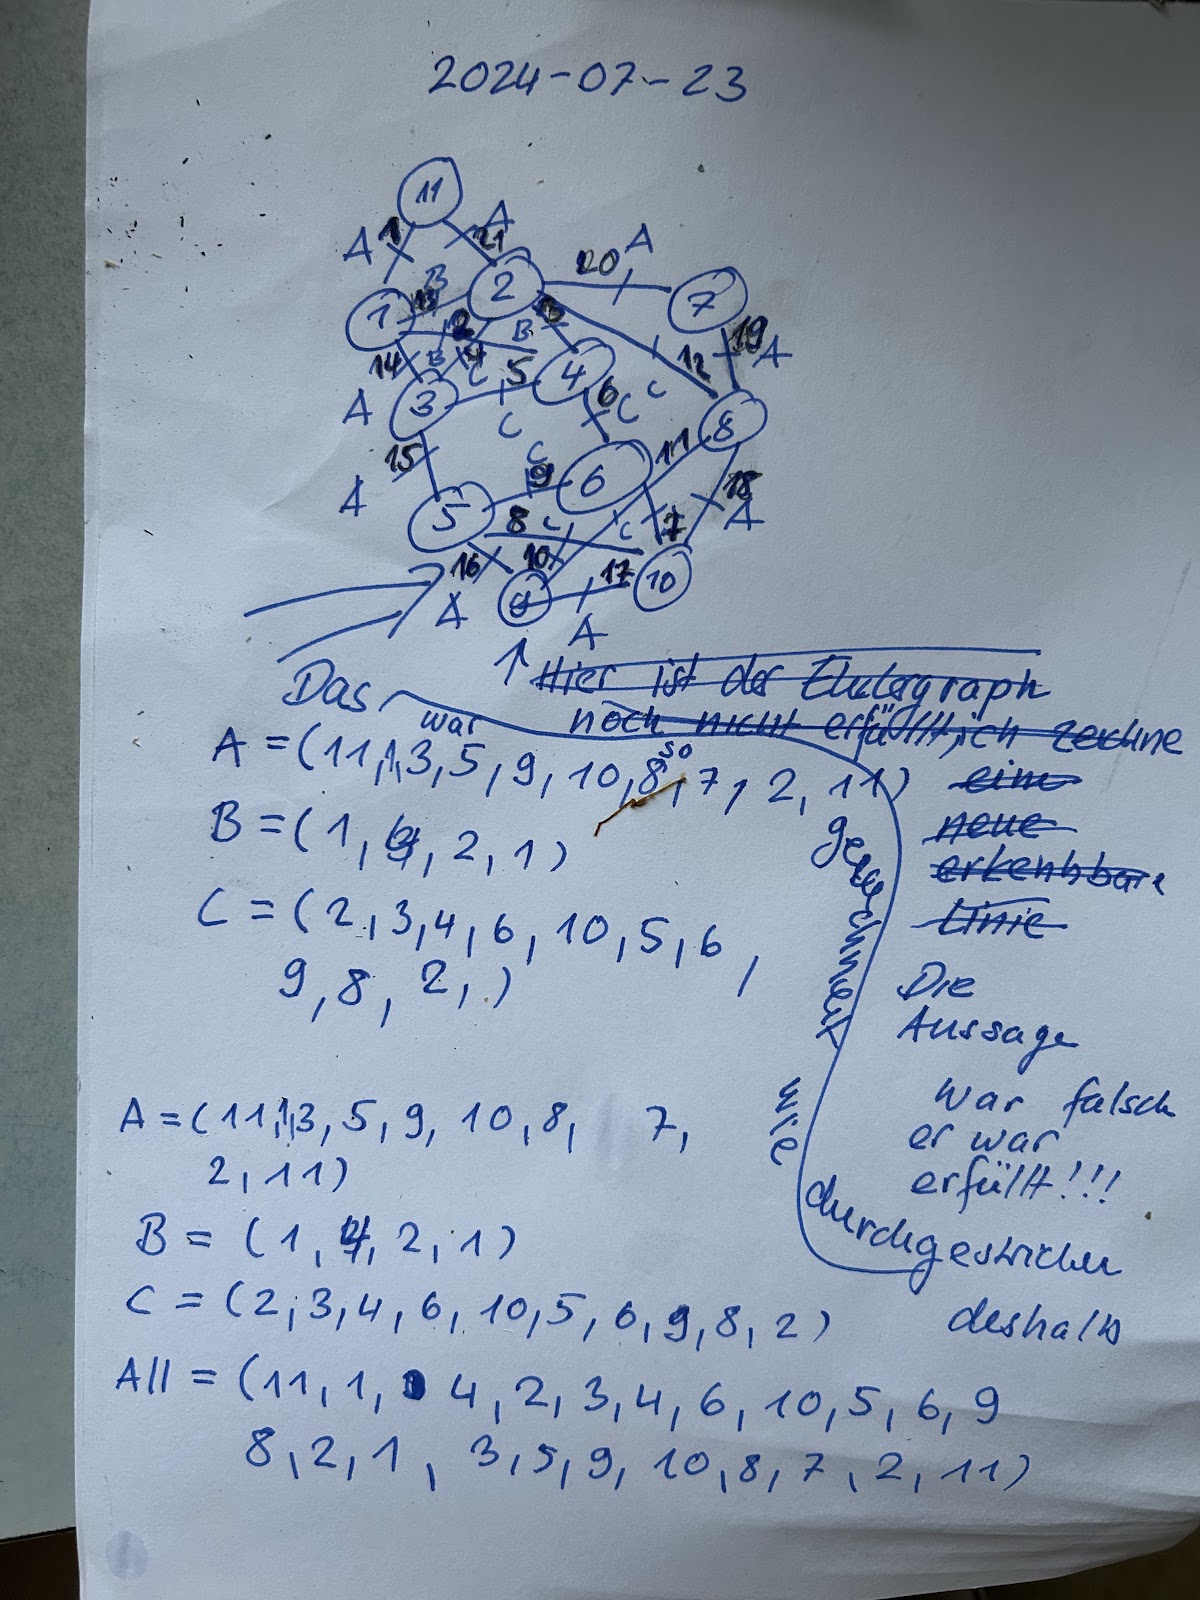 2024-07-23
11
A 1 A
21
20 A
B
13 2 7
1 2 B 13 19
14 B 4 C 5 4 12 A
A 3 6 C C 8
C
15 C 11
A 9 6 18
5 8 C C 7 A
16 10 17 10
A 9
A
Hier ist der Eulergraph
Das war so gezeichnet wie durchgestrichen
noch nicht erfüllt, ich zeichne
eine
neue
erkennbare
Linie
A = (11, 1, 3, 5, 9, 10, 8, 7, 2, 11)
B = (1, 4, 2, 1)
C = (2, 3, 4, 6, 10, 5, 6,
9, 8, 2, )
Die
Aussage
war falsch
er war
erfüllt!!!
deshalb
A = (11, 1, 3, 5, 9, 10, 8, 7,
2, 11)
B = (1, 4, 2, 1)
C = (2, 3, 4, 6, 10, 5, 6, 9, 8, 2)
All = (11, 1, 4, 2, 3, 4, 6, 10, 5, 6, 9
8, 2, 1, 3, 5, 9, 10, 8, 7, 2, 11)